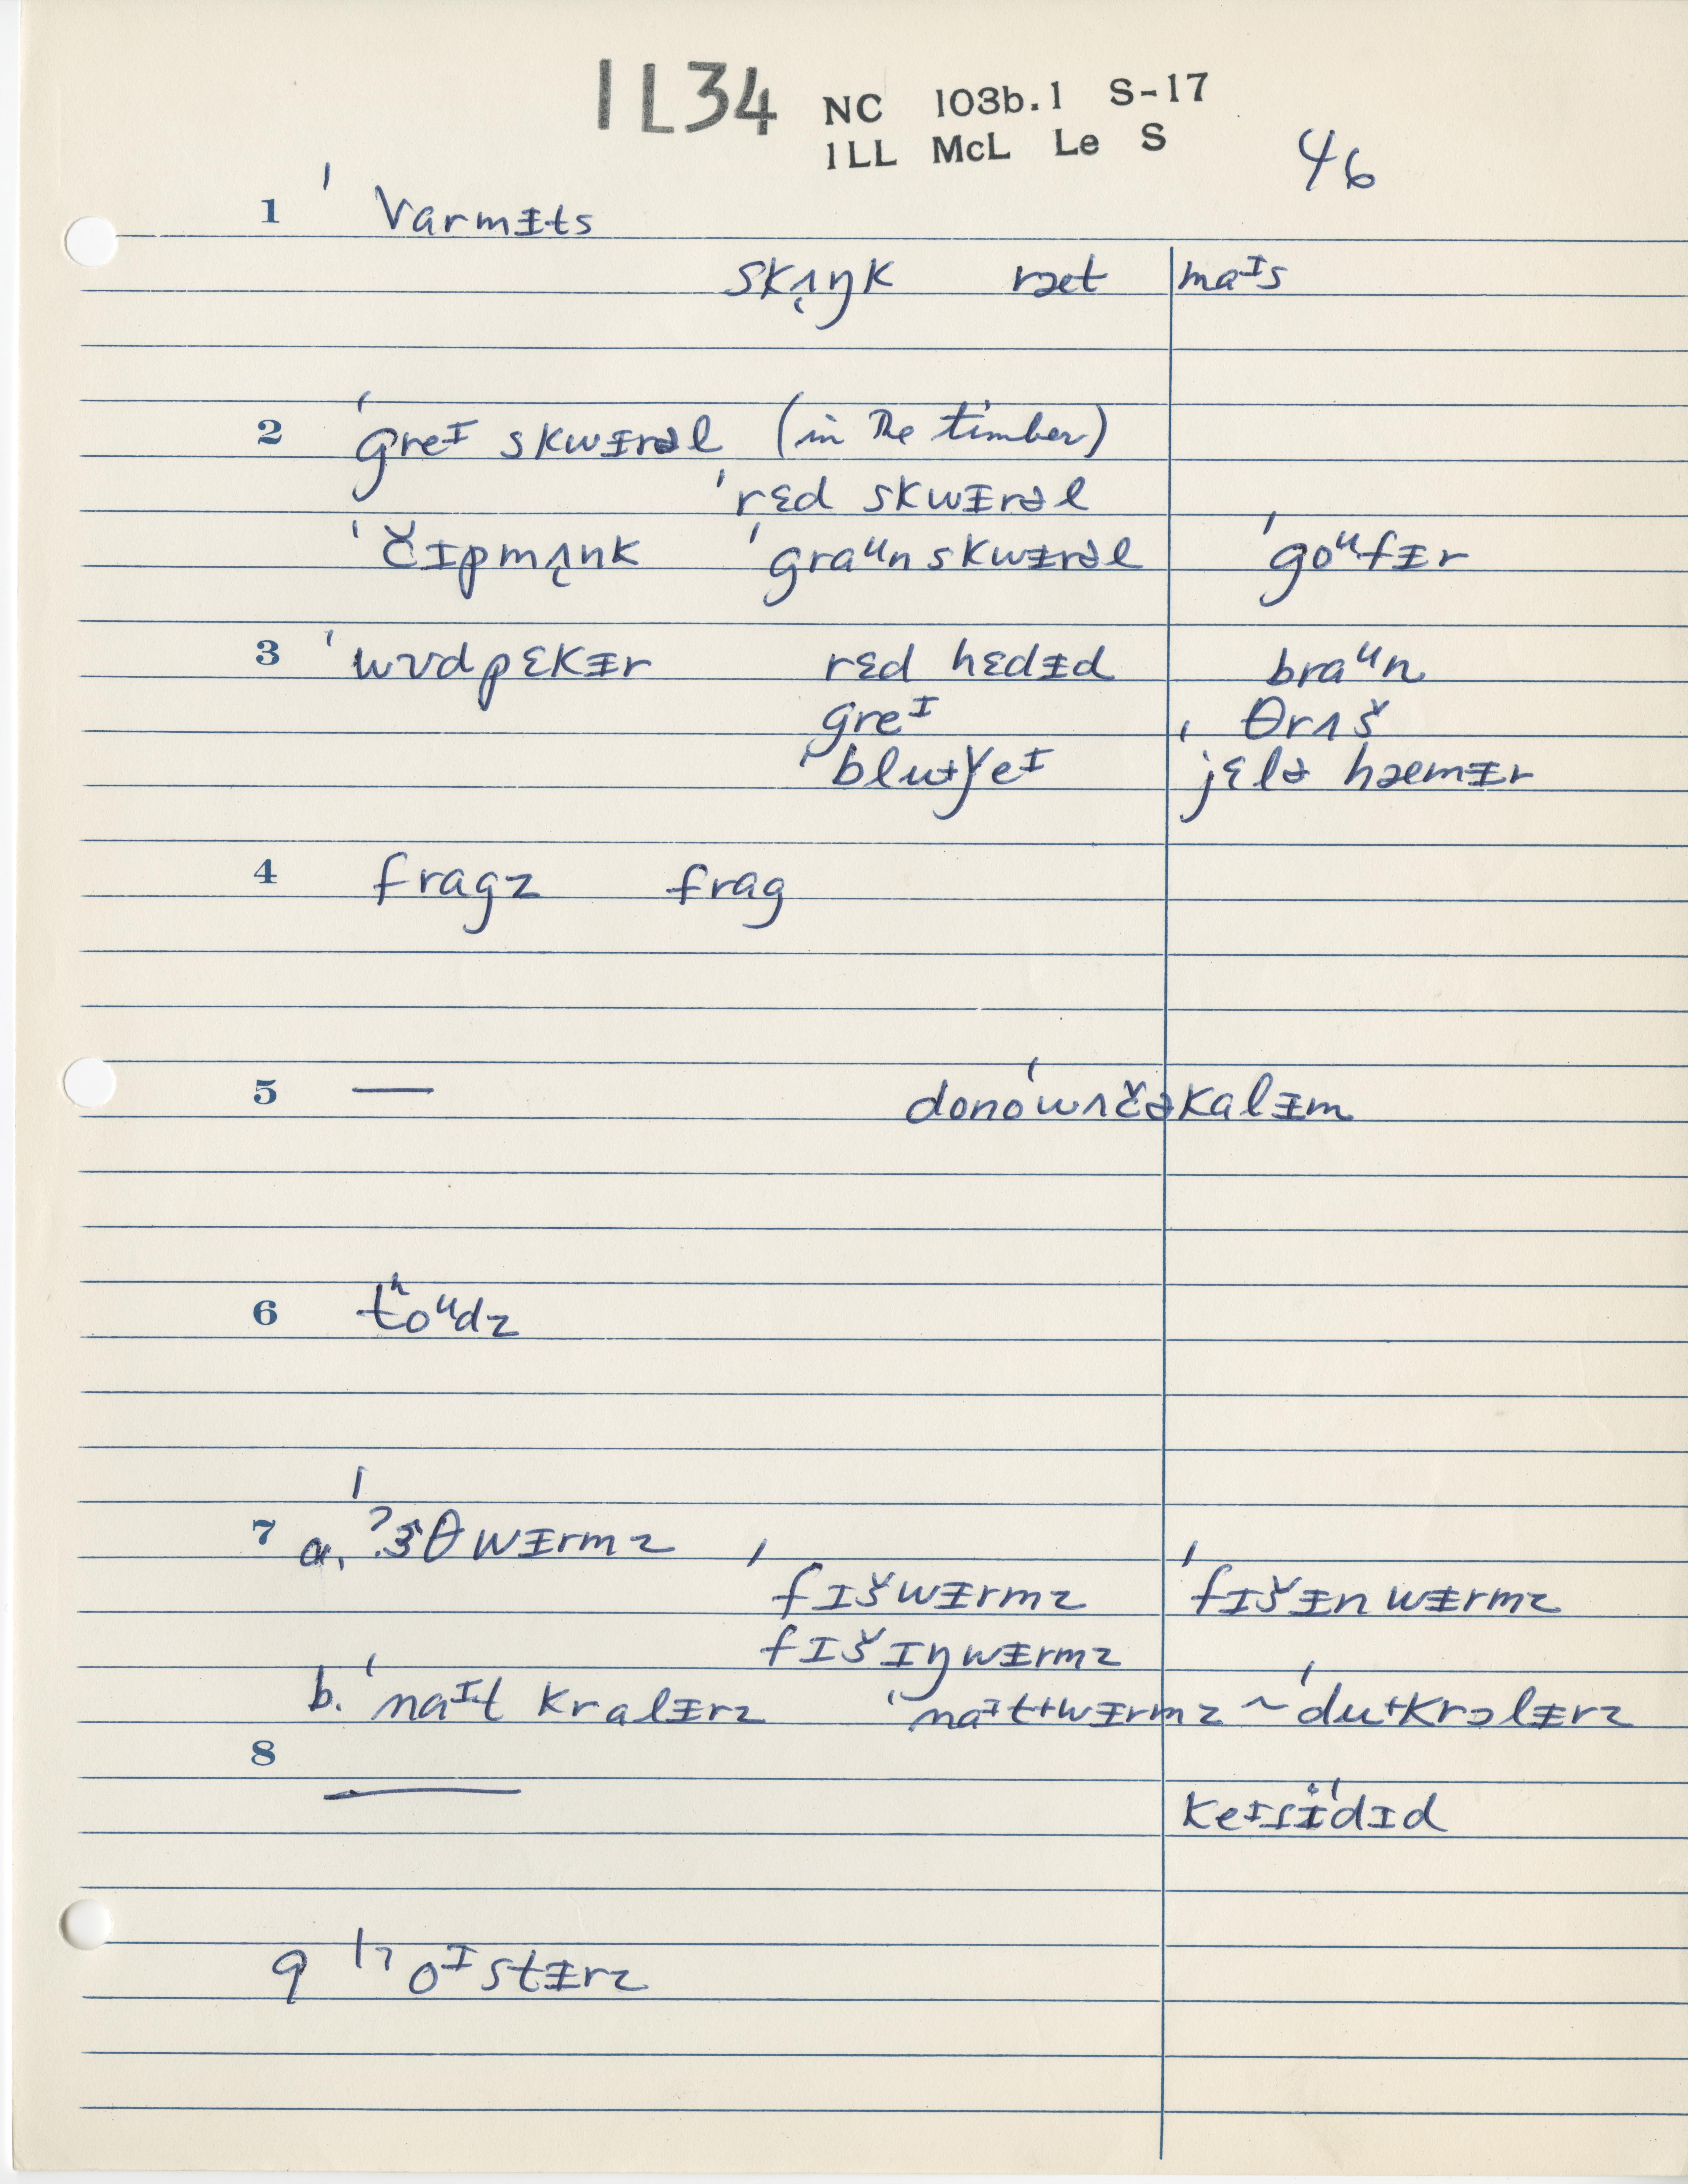 IL34 NC 103b.1 S-17
ILL McL Le S 46
1 ˈvarmᵻts
skʌ̨ŋk ræt maᴵs
2 ˈgreᴵ skwᵻrəl (in the timber)
ˈrɛd skwᵻrəl
ˈčɪpmʌ̨nk ˈgraᵘnskwᵻrəl ˈgoᵘfᵻr
3 ˈwʊdpɛkᵻr rɛd hɛdᵻd braᵘn
greᴵ ˌθrʌš
ˈblʉǰeᴵ jɛlə hæmᵻr
4 fragz frag
5 — donóˈwʌčəkalᵻm
6 tʰoᵘdz
7 a. ˈʔɜθwᵻrmz
ˈfɪšwᵻrmz ˈfɪšᵻnwᵻrmz
fɪšɪŋwᵻrmz
b. ˈnaᴵt kralᵻrz ˈnaᴵt+wᵻrmz ~ ˈdʉkrɔlᵻrz
8
— keɪsᵻ́dɪd
9 ˈʔoᴵstᵻrz